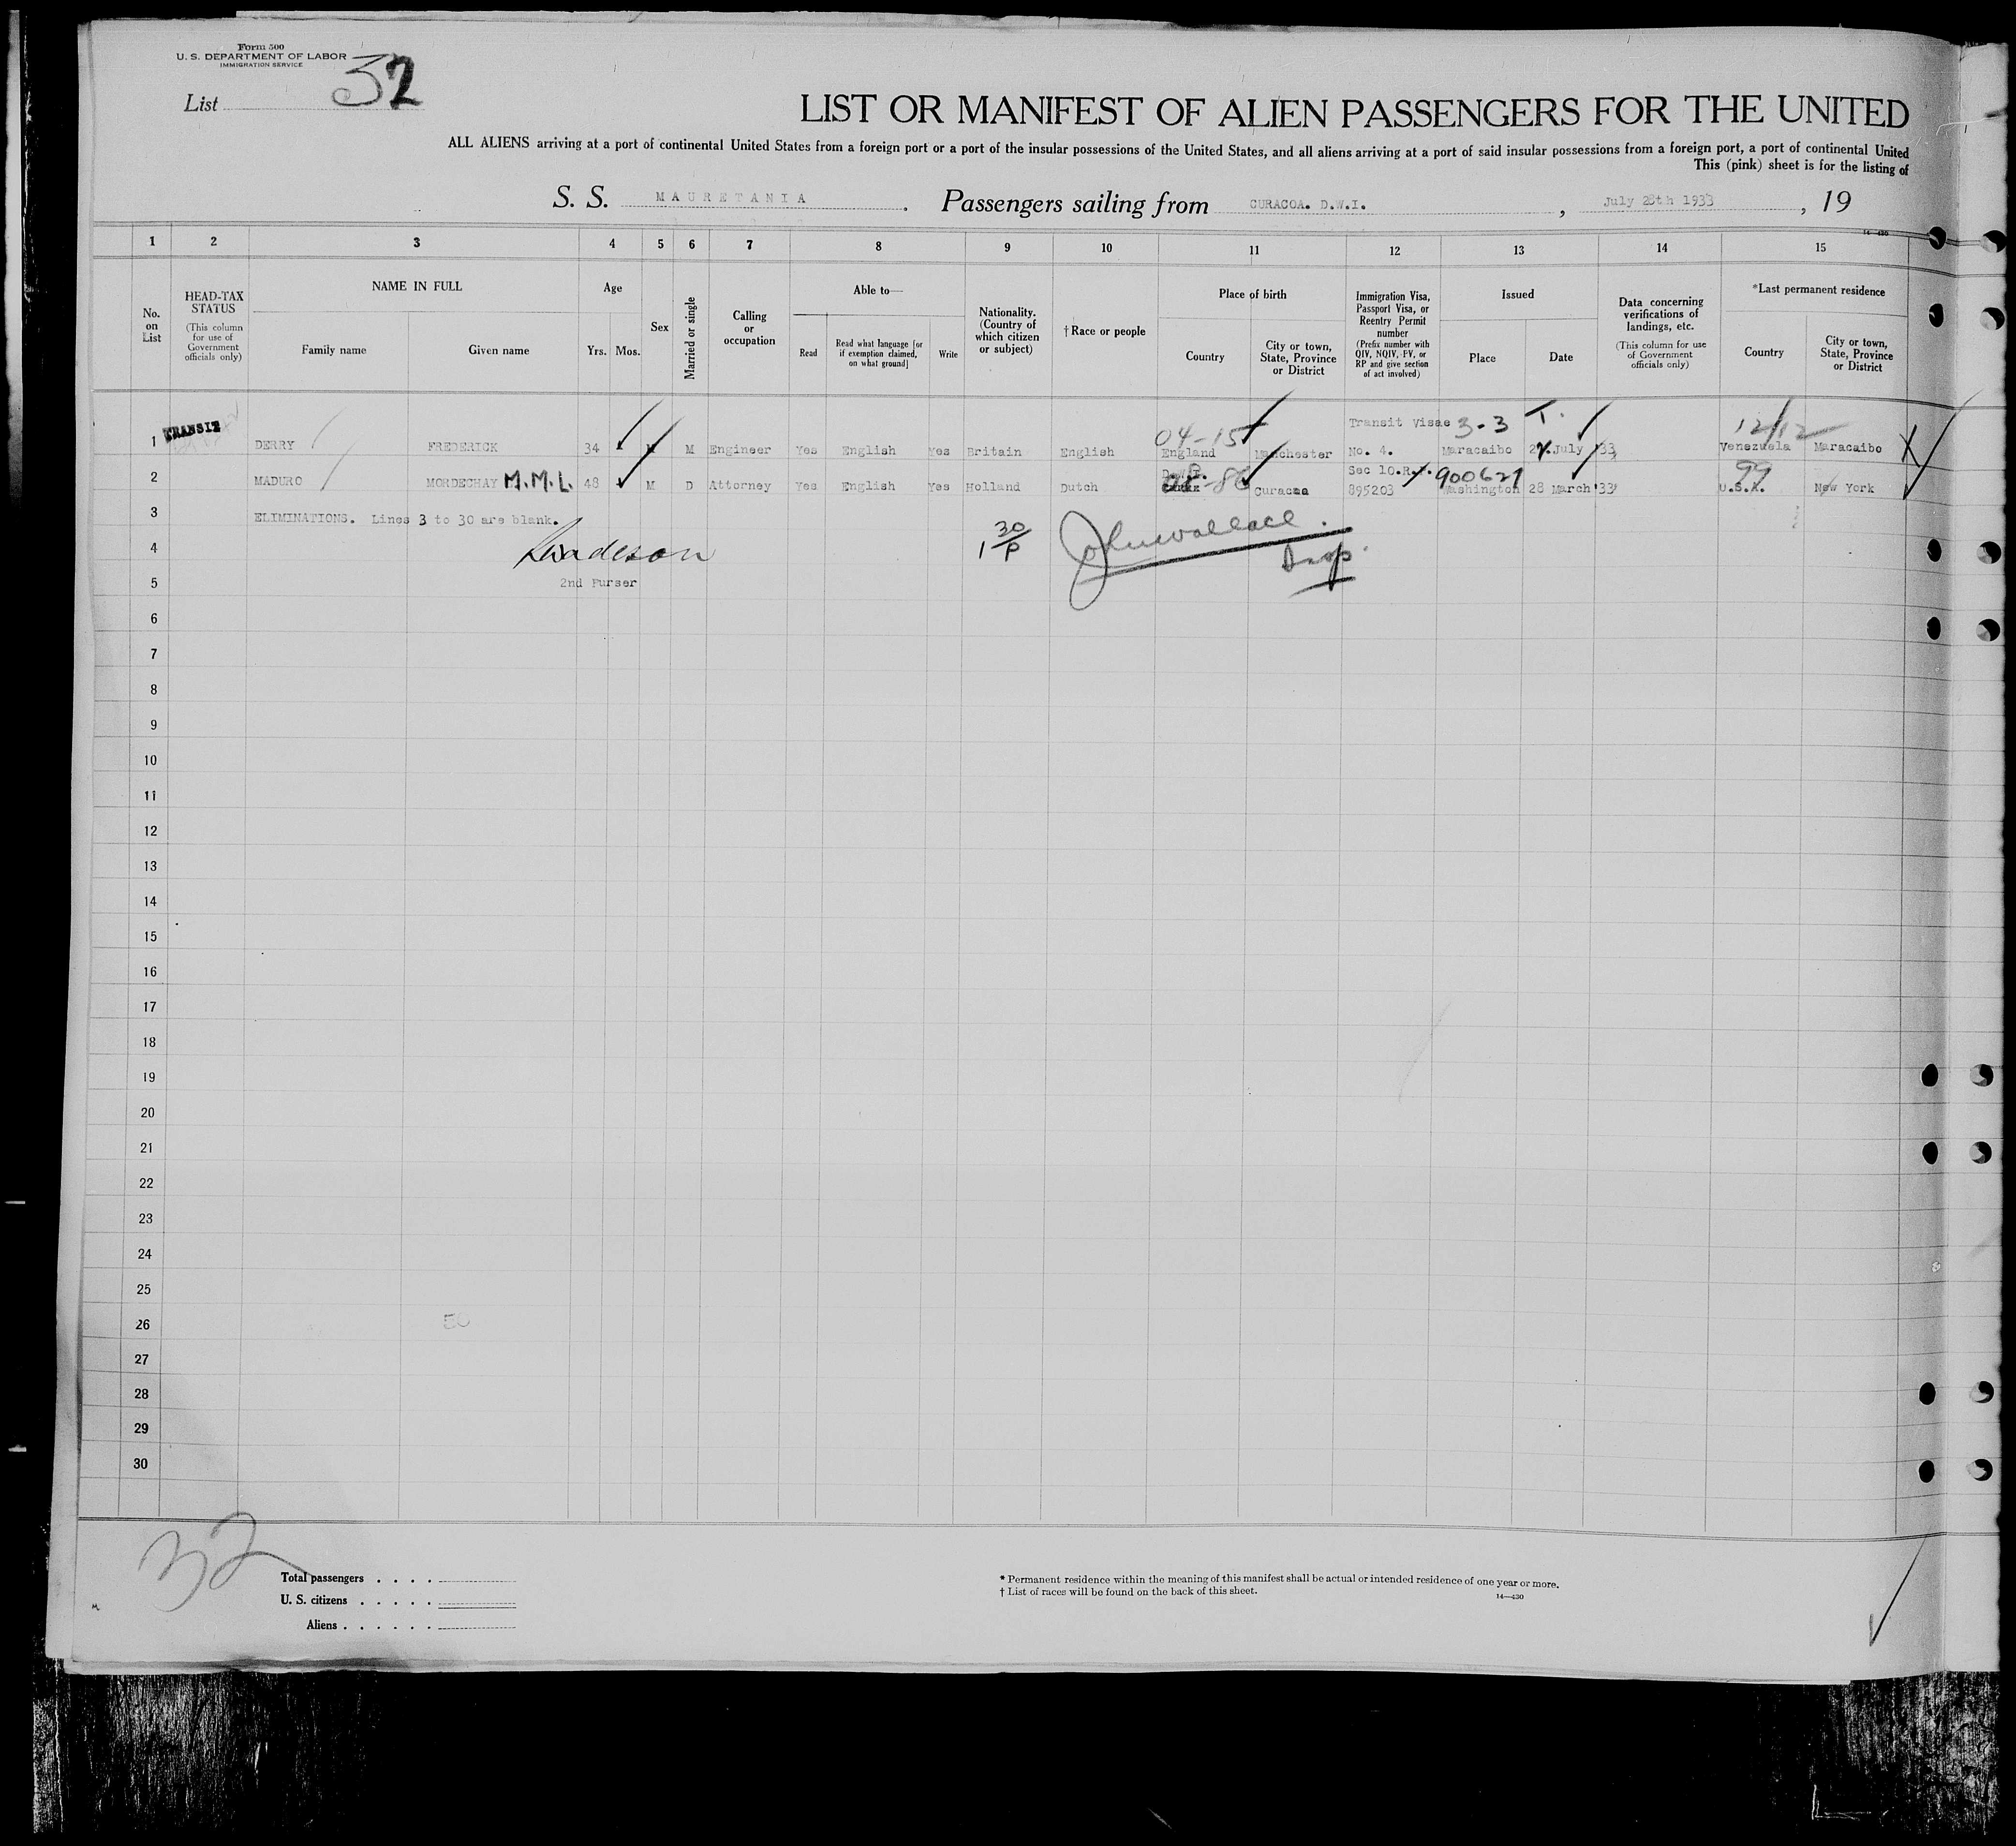 Form 500
U. S. DEPARTMENT OF LABOR
IMMIGRATION SERVICE
List 32
LIST OR MANIFEST OF ALIEN PASSENGERS FOR THE UNITED
ALL ALIENS arriving at a port of continental United States from a foreign port or a port of the insular possessions of the United States, and all aliens arriving at a port of said insular possessions from a foreign port, a port of continental United
This (pink) sheet is for the listing of
S. S. MAURETANIA . Passengers sailing from CURACOA. D.W.I. , July 28th 1933 , 19
14—430
1 2 3 4 5 6 7 8 9 10 11 12 13 14 15
No. on List
HEAD-TAX STATUS
(This column for use of Government officials only)
NAME IN FULL
Family name
Given name
Age
Yrs. Mos.
Sex
Married or single
Calling or occupation
Able to—
Read
Read what language [or if exemption claimed, on what ground]
Write
Nationality. (Country of which citizen or subject)
†Race or people
Place of birth
Country
City or town, State, Province or District
Immigration Visa, Passport Visa, or Reentry Permit number
(Prefix number with QIV, NQIV, PV, or RP and give section of act involved)
Issued
Place
Date
Data concerning verifications of landings, etc.
(This column for use of Government officials only)
*Last permanent residence
Country
City or town, State, Province or District
04-15 Transit Visae 3-3 T. 12/12
1 TRANSIT DERRY FREDERICK 34 M M Engineer Yes English Yes Britain English England Manchester No. 4. Maracaibo July 33 Venezuela Maracaibo
Sec 10. 900627 99
2 MADURO MORDECHAY M.M.L. 48 M D Attorney Yes English Yes Holland Dutch Curacoa 895203 Washington 28 March '33 U.S.A. New York
3 ELIMINATIONS. Lines 3 to 30 are blank.
4 1 30/P John Wallace
5 2nd Purser
6
7
8
9
10
11
12
13
14
15
16
17
18
19
20
21
22
23
24
25
26
27
28
29
30
32
Total passengers . . . .
U. S. citizens . . . . .
Aliens . . . . . .
* Permanent residence within the meaning of this manifest shall be actual or intended residence of one year or more.
† List of races will be found on the back of this sheet.
14—430